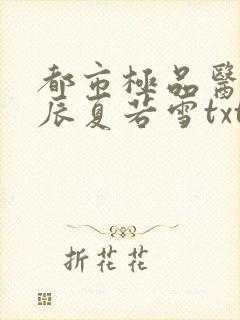 都市極品醫
辰夏若雪txt
折花花